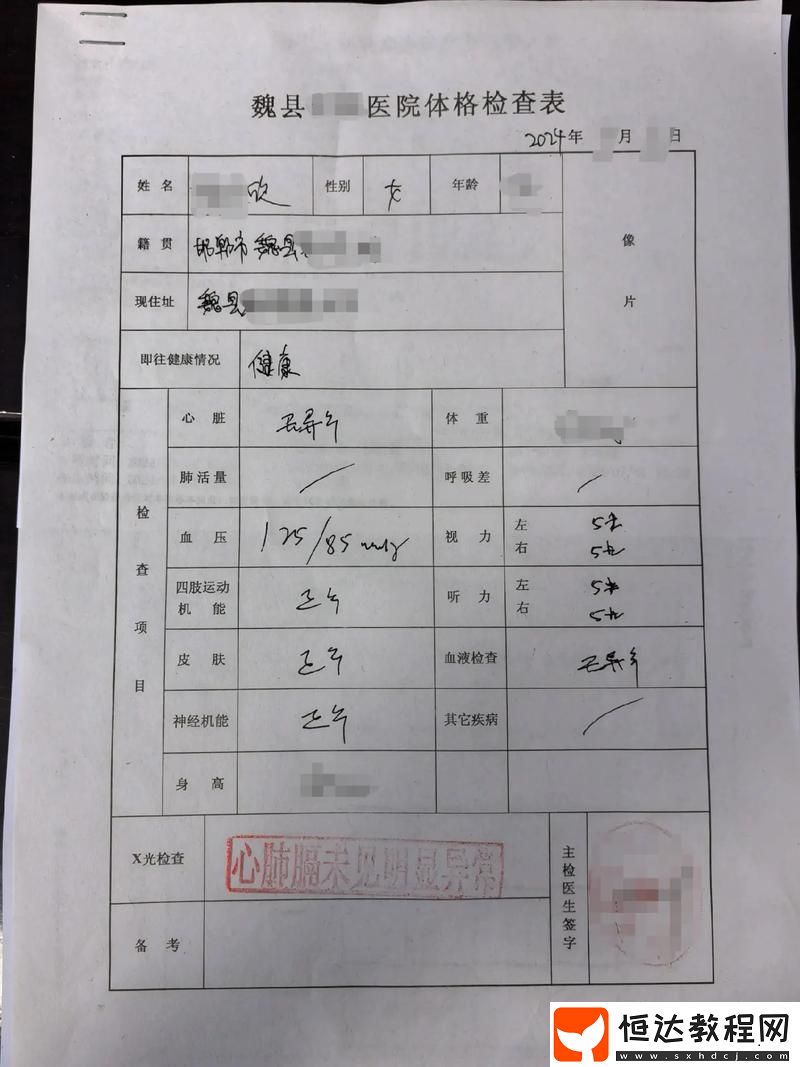 魏县 医院体格检查表
2024年 月 日
姓 名 欣 性别 女 年龄
像
片
籍 贯 邯郸市魏县
现住址 魏县
即往健康情况 健康
检
查
项
目
心 脏 无异常 体 重
肺活量 / 呼吸差 /
血 压 125/85 mmHg 视 力 左
右
四肢运动
机 能 正常 听 力 左
右
皮 肤 正常 血液检查 无异常
神经机能 正常 其它疾病 /
身 高
X光检查 心肺膈未见明显异常
主检医生签字
备 考
恒达教程网
www.sxhdcj.com